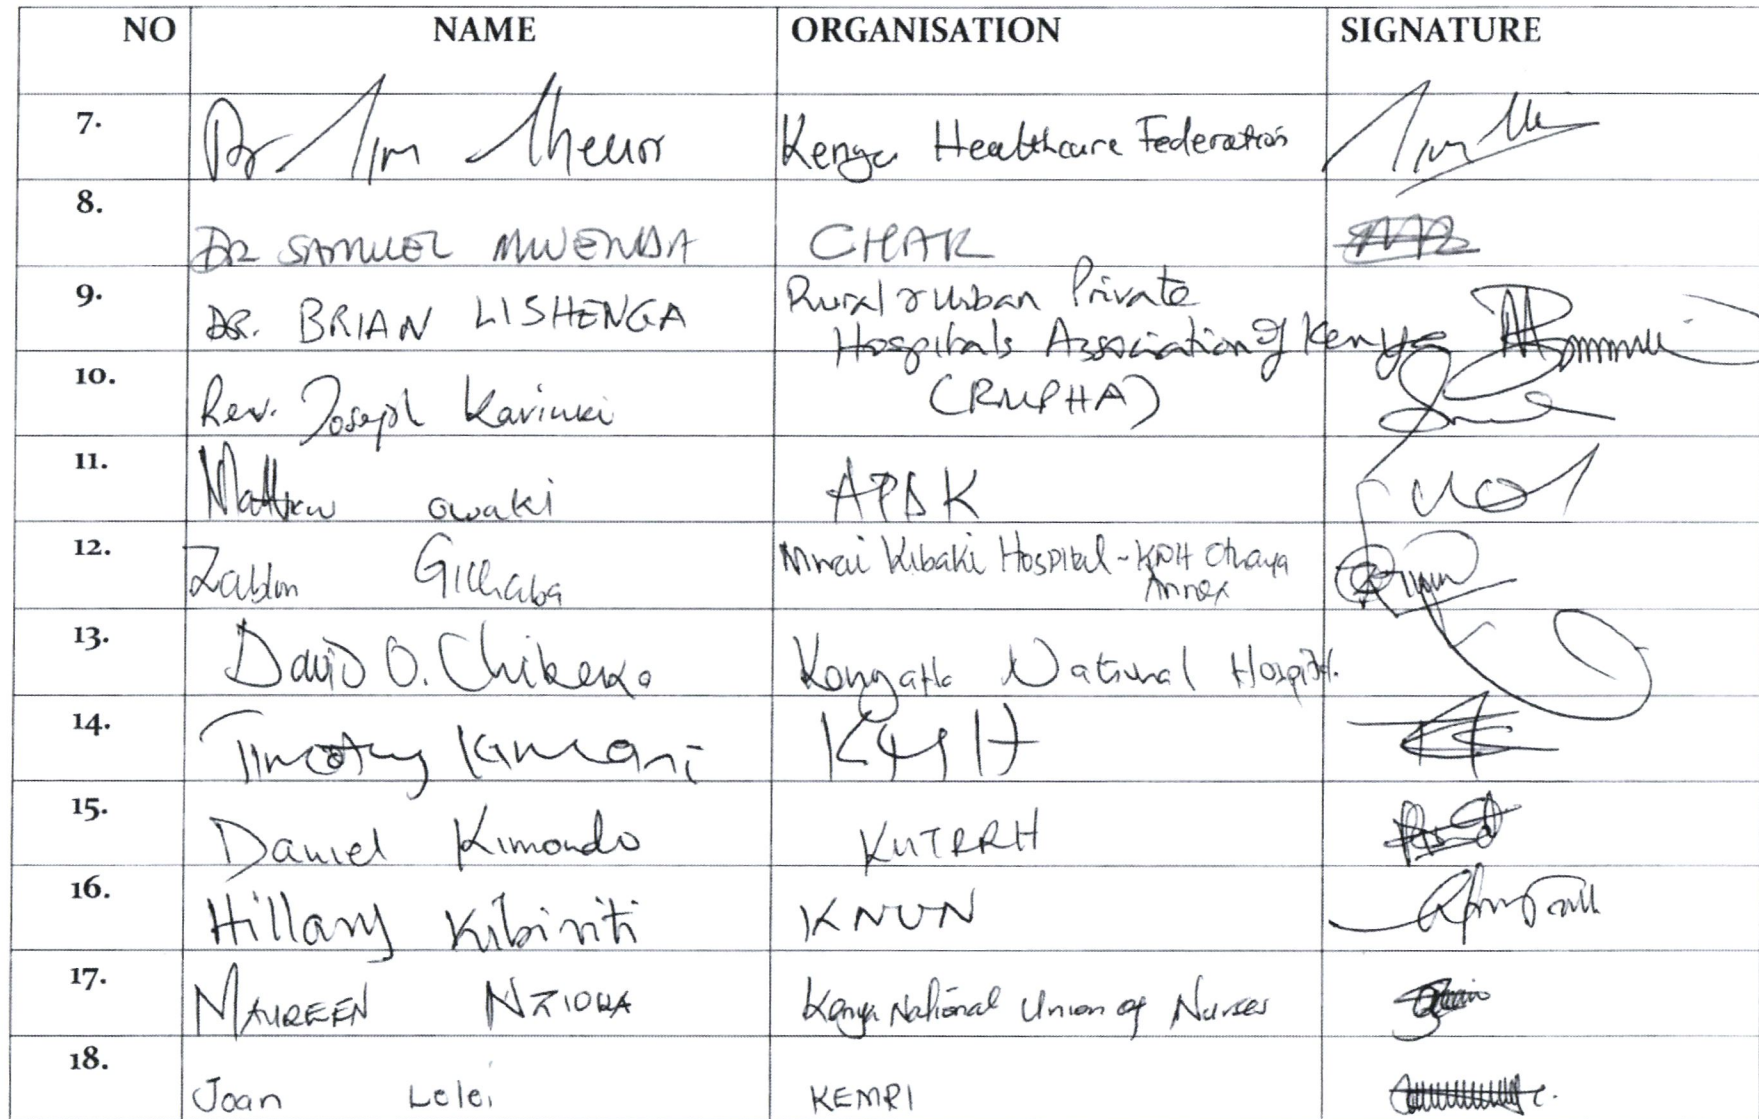 NO NAME ORGANISATION SIGNATURE
7. Dr Tim Theuri Kenya Healthcare Federation
8. DR SAMUEL MWENDA CHAK
9. DR. BRIAN LISHENGA Rural & Urban Private
Hospitals Association of Kenya
10. Rev. Joseph Kariuki (RUPHA)
11. Matthew owaki APBK
12. Zablon Githaba Mwai Kibaki Hospital - KNH Othaya
Annex
13. David O. Chibeka Kenyatta National Hospital
14. Timothy Kimani
15. Daniel Kimondo KUTRRH
16. Hillary Kibiriti KNUN
17. MAUREEN NZIOKA Kenya National Union of Nurses
18. Joan Lelei KEMRI